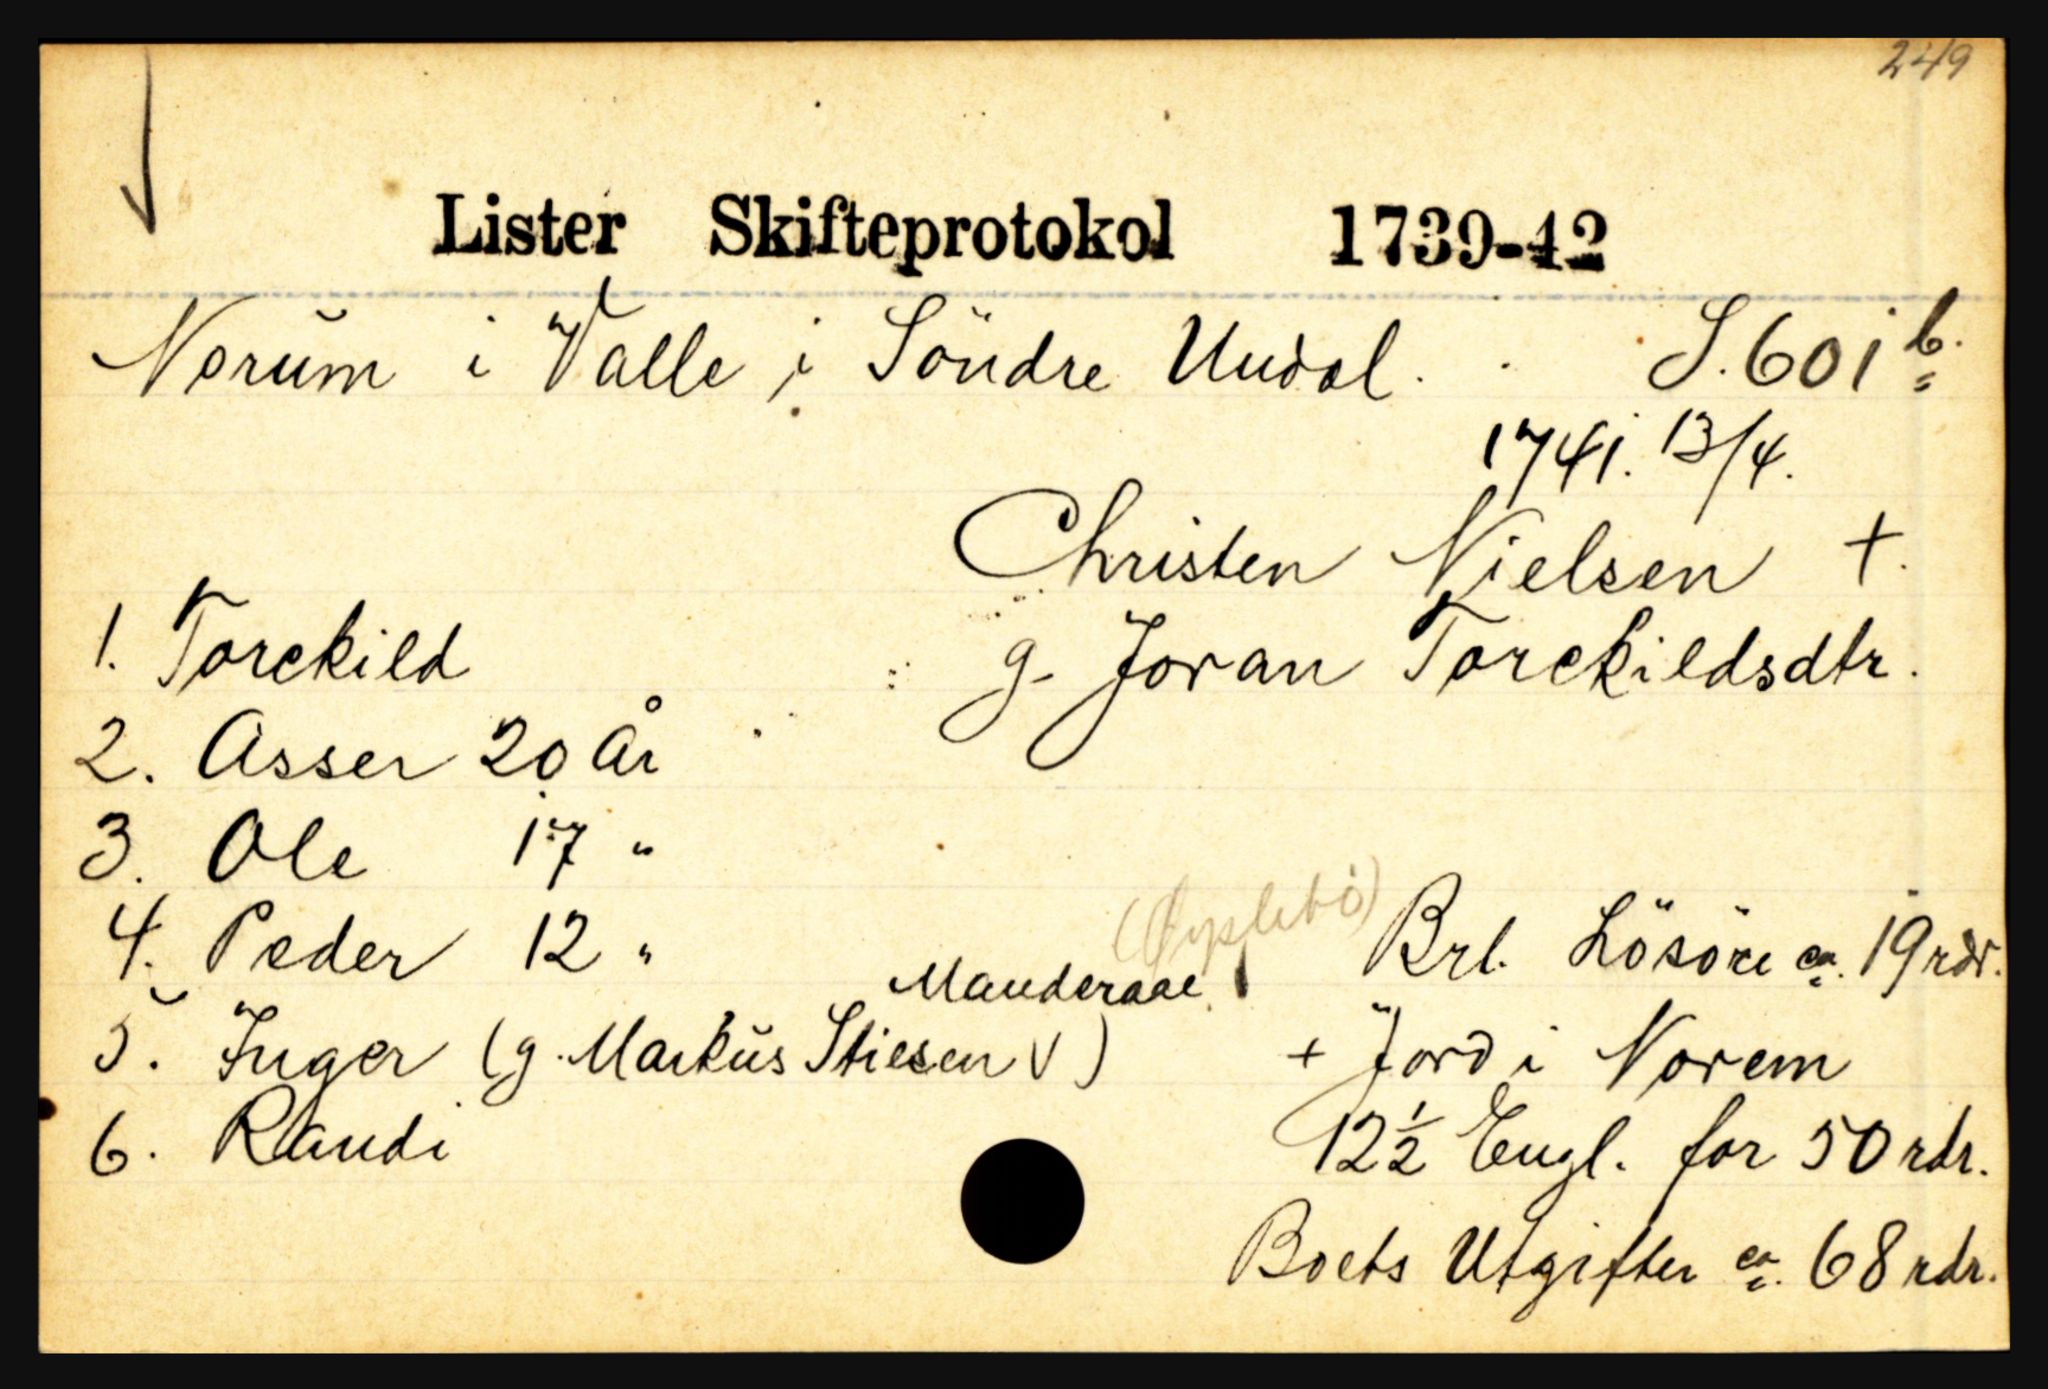 249
Lister Skifteprotokol 1739-42
Norum i Valle i Söndre Undal. S. 601 b.
1741. 13/4.
Christen Nielsen +.
g. Joran Torckildsdtr.
1. Torckild
2. Asser 20 År
3. Ole 17 "
4. Peder 12 "
Manderaae
5. Inger (g. Markŭs Stiesen V)
6. Randi
Brt. Lösöre ca. 19 rdr.
+ Jord i Norem
12 1/2 Engl. for 50 rdr.
Boets Utgifter ca. 68 rdr.